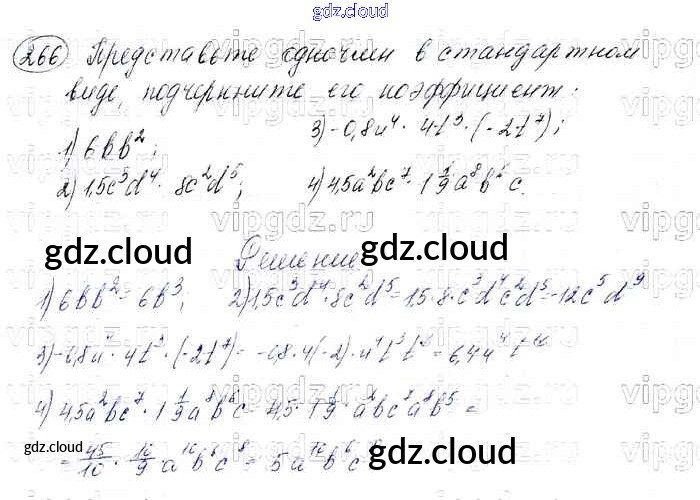 gdz.cloud
266 Представьте одночлен в стандартном
виде, подчеркните его коэффициент:
1) 6bb²;
3) -0,8u⁴ · 4t³ · (-2t⁷);
2) 1,5c³d⁴ · 8c²d⁵;
4) 4,5a²bc⁷ · 1 1/9 a⁸b⁵c.
gdz.cloud
gdz.cloud
Решение
1) 6bb² = 6b³; 2) 1,5c³d⁴ · 8c²d⁵ = 1,5 · 8 · c³d⁴c²d⁵ = 12c⁵d⁹
3) -0,8u⁴ · 4t³ · (-2t⁷) = -0,8 · 4(-2) · u⁴t³t⁷ = 6,4u⁴t¹⁰
4) 4,5a²bc⁷ · 1 1/9 a⁸b⁵c = 4,5 · 1 1/9 · a²bc⁷a⁸b⁵ =
= 45/10 · 10/9 a¹⁰b⁶c⁸ = 5a¹⁰b⁶c
gdz.cloud
gdz.cloud